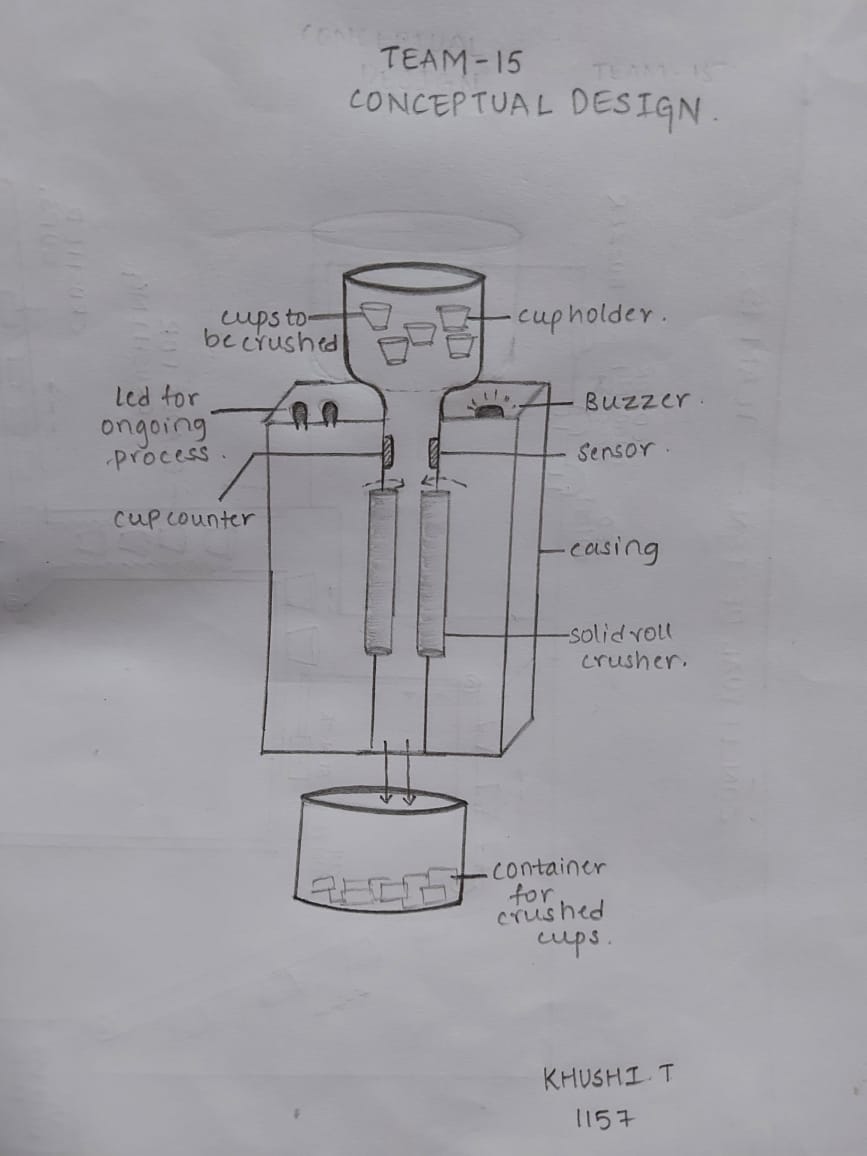 TEAM-15
CONCEPTUAL DESIGN.
cups to
be crushed
cup holder.
led for
ongoing
process.
Buzzer.
sensor.
cup counter
casing
solid roll
crusher.
container
for
crushed
cups.
KHUSHI.T
1157